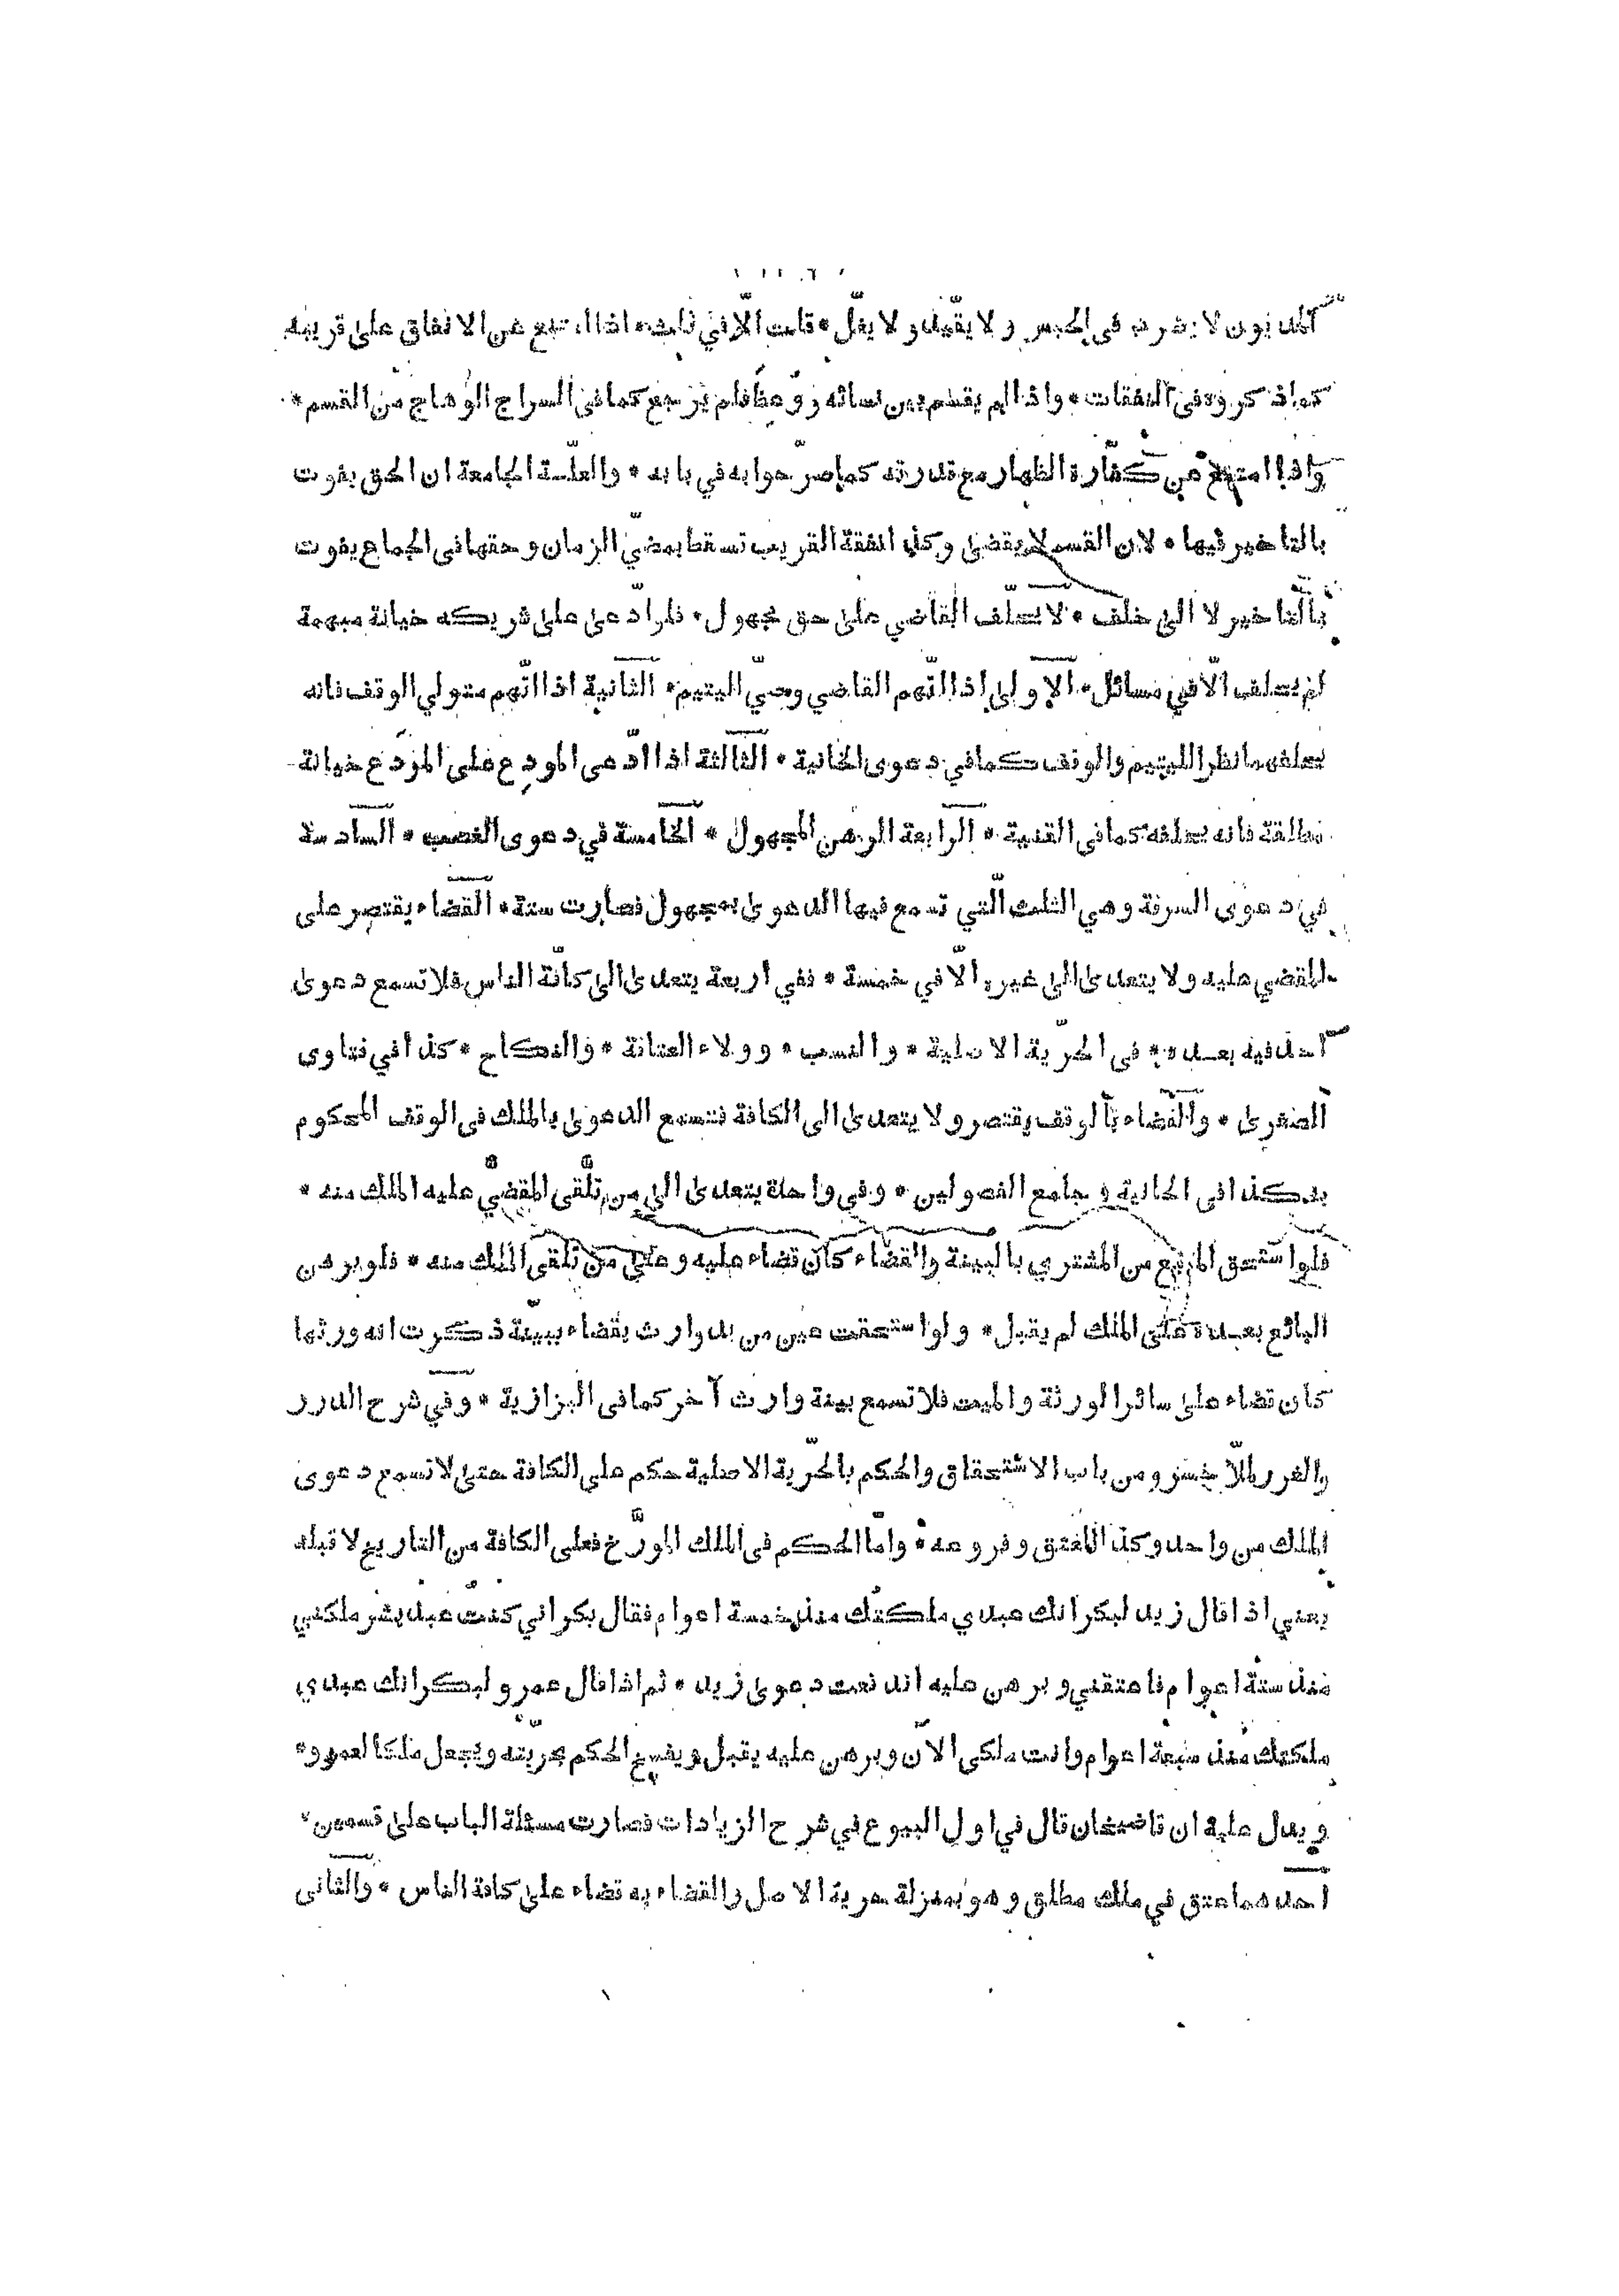 المديون لا يضرب في الحبس ولا يقيد ولا يغل * قلت الّا في ثلث * اذا امتنع عن الانفاق على قريبه
كما ذكروه في النفقات * واذا لم يقسم بين نسائه ووعظ فلم يرجع كما في السراج الوهاج من القسم *
واذا امتنع من كفّارة الظهار مع قدرته كما صرّحوا به في بابه * والعلّة الجامعة ان الحق يفوت
بالتاخير فيها * لان القسم لا يقضى وكذا نفقة القريب تسقط بمضيّ الزمان وحقها في الجماع يفوت
بالتاخير لا الى خلف * لا يحلّف القاضي على حق مجهول * فلو ادّعى على شريكه خيانة مبهمة
لم يحلف الّا في مسائل * الاولى اذا اتّهم القاضي وصيّ اليتيم * الثانية اذا اتّهم متولي الوقف فانه
يحلفهما نظرا لليتيم والوقف كما في دعوى الخانية * الثالثة اذا ادّعى المودع على المودَع خيانة
مطلقة فانه يحلفه كما في القنية * الرابعة الرهن المجهول * الخامسة في دعوى الغصب * السادسة
في دعوى السرقة وهي الثلث الّتي تسمع فيها الدعوى بمجهول فصارت ستة * القضاء يقتصر على
المقضي عليه ولا يتعدى الى غيره الّا في خمسة * ففي اربعة يتعدى الى كافّة الناس فلا تسمع دعوى
احد فيه بعده * في الحرّية الاصلية * والنسب * وولاء العتاقة * والنكاح * كذا في فتاوى
الصغرى * والقضاء بالوقف يقتصر ولا يتعدى الى الكافة فتسمع الدعوى بالملك في الوقف المحكوم
به كذا في الخانية وجامع الفصولين * وفي واحدة يتعدى الى من تلّقى المقضيّ عليه الملك منه *
فلو استحق المبيع من المشتري بالبينة والقضاء كان قضاء عليه وعلى من تلقى الملك منه * فلو برهن
البائع بعده على الملك لم يقبل * ولو استحقت عين من يد وارث بقضاء ببيّنة ذكرت انه ورثها
كان قضاء على سائر الورثة والميت فلا تسمع بينة وارث آخر كما في البزازية * وفي شرح الدرر
والغرر لملّا خسرو من باب الاستحقاق والحكم بالحرّية الاصلية حكم على الكافة حتى لا تسمع دعوى
الملك من واحد وكذا العتق وفروعه * وامّا الحكم في الملك المورّخ فعلى الكافة من التاريخ لا قبله
يعني اذا قال زيد لبكر انك عبدي ملكتك منذ خمسة اعوام فقال بكر اني كنت عبد بشر ملكني
منذ ستة اعوام فاعتقني وبرهن عليه اندفعت دعوى زيد * ثم اذا قال عمرو لبكر انك عبدي
ملكتك منذ سبعة اعوام وانت ملكي الآن وبرهن عليه يقبل ويفسخ الحكم بحرّيته ويجعل ملكا لعمرو *
ويدل عليه ان قاضيخان قال في اول البيوع في شرح الزيادات فصارت مسئلة الباب على قسمين *
احدهما عتق في ملك مطلق وهو بمنزلة حرية الاصل والقضاء به قضاء على كافة الناس * والثاني